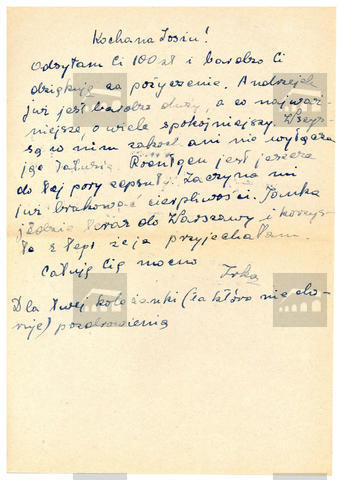 Kochana Zosiu!
Odsyłam Ci 100 zł i bardzo Ci
dziękuję za pożyczenie. Andrzejek
już jest bardzo duży, a co najważ-
niejsze, o wiele spokojniejszy. Wszys
są w nim zakoch ani nie wyłącza
jąc Tatusia. Röentgen jest jeszcze
do tej pory zepsuty. Zaczyna mi
już brakować cierpliwości. Tomka
jedzie teraz do Warszawy i korzys
ta z tego że ja przyjechałam.
Całuję Cię mocno
Irka
Dla Twej koleżanki (za która nie
) pozdrowienia